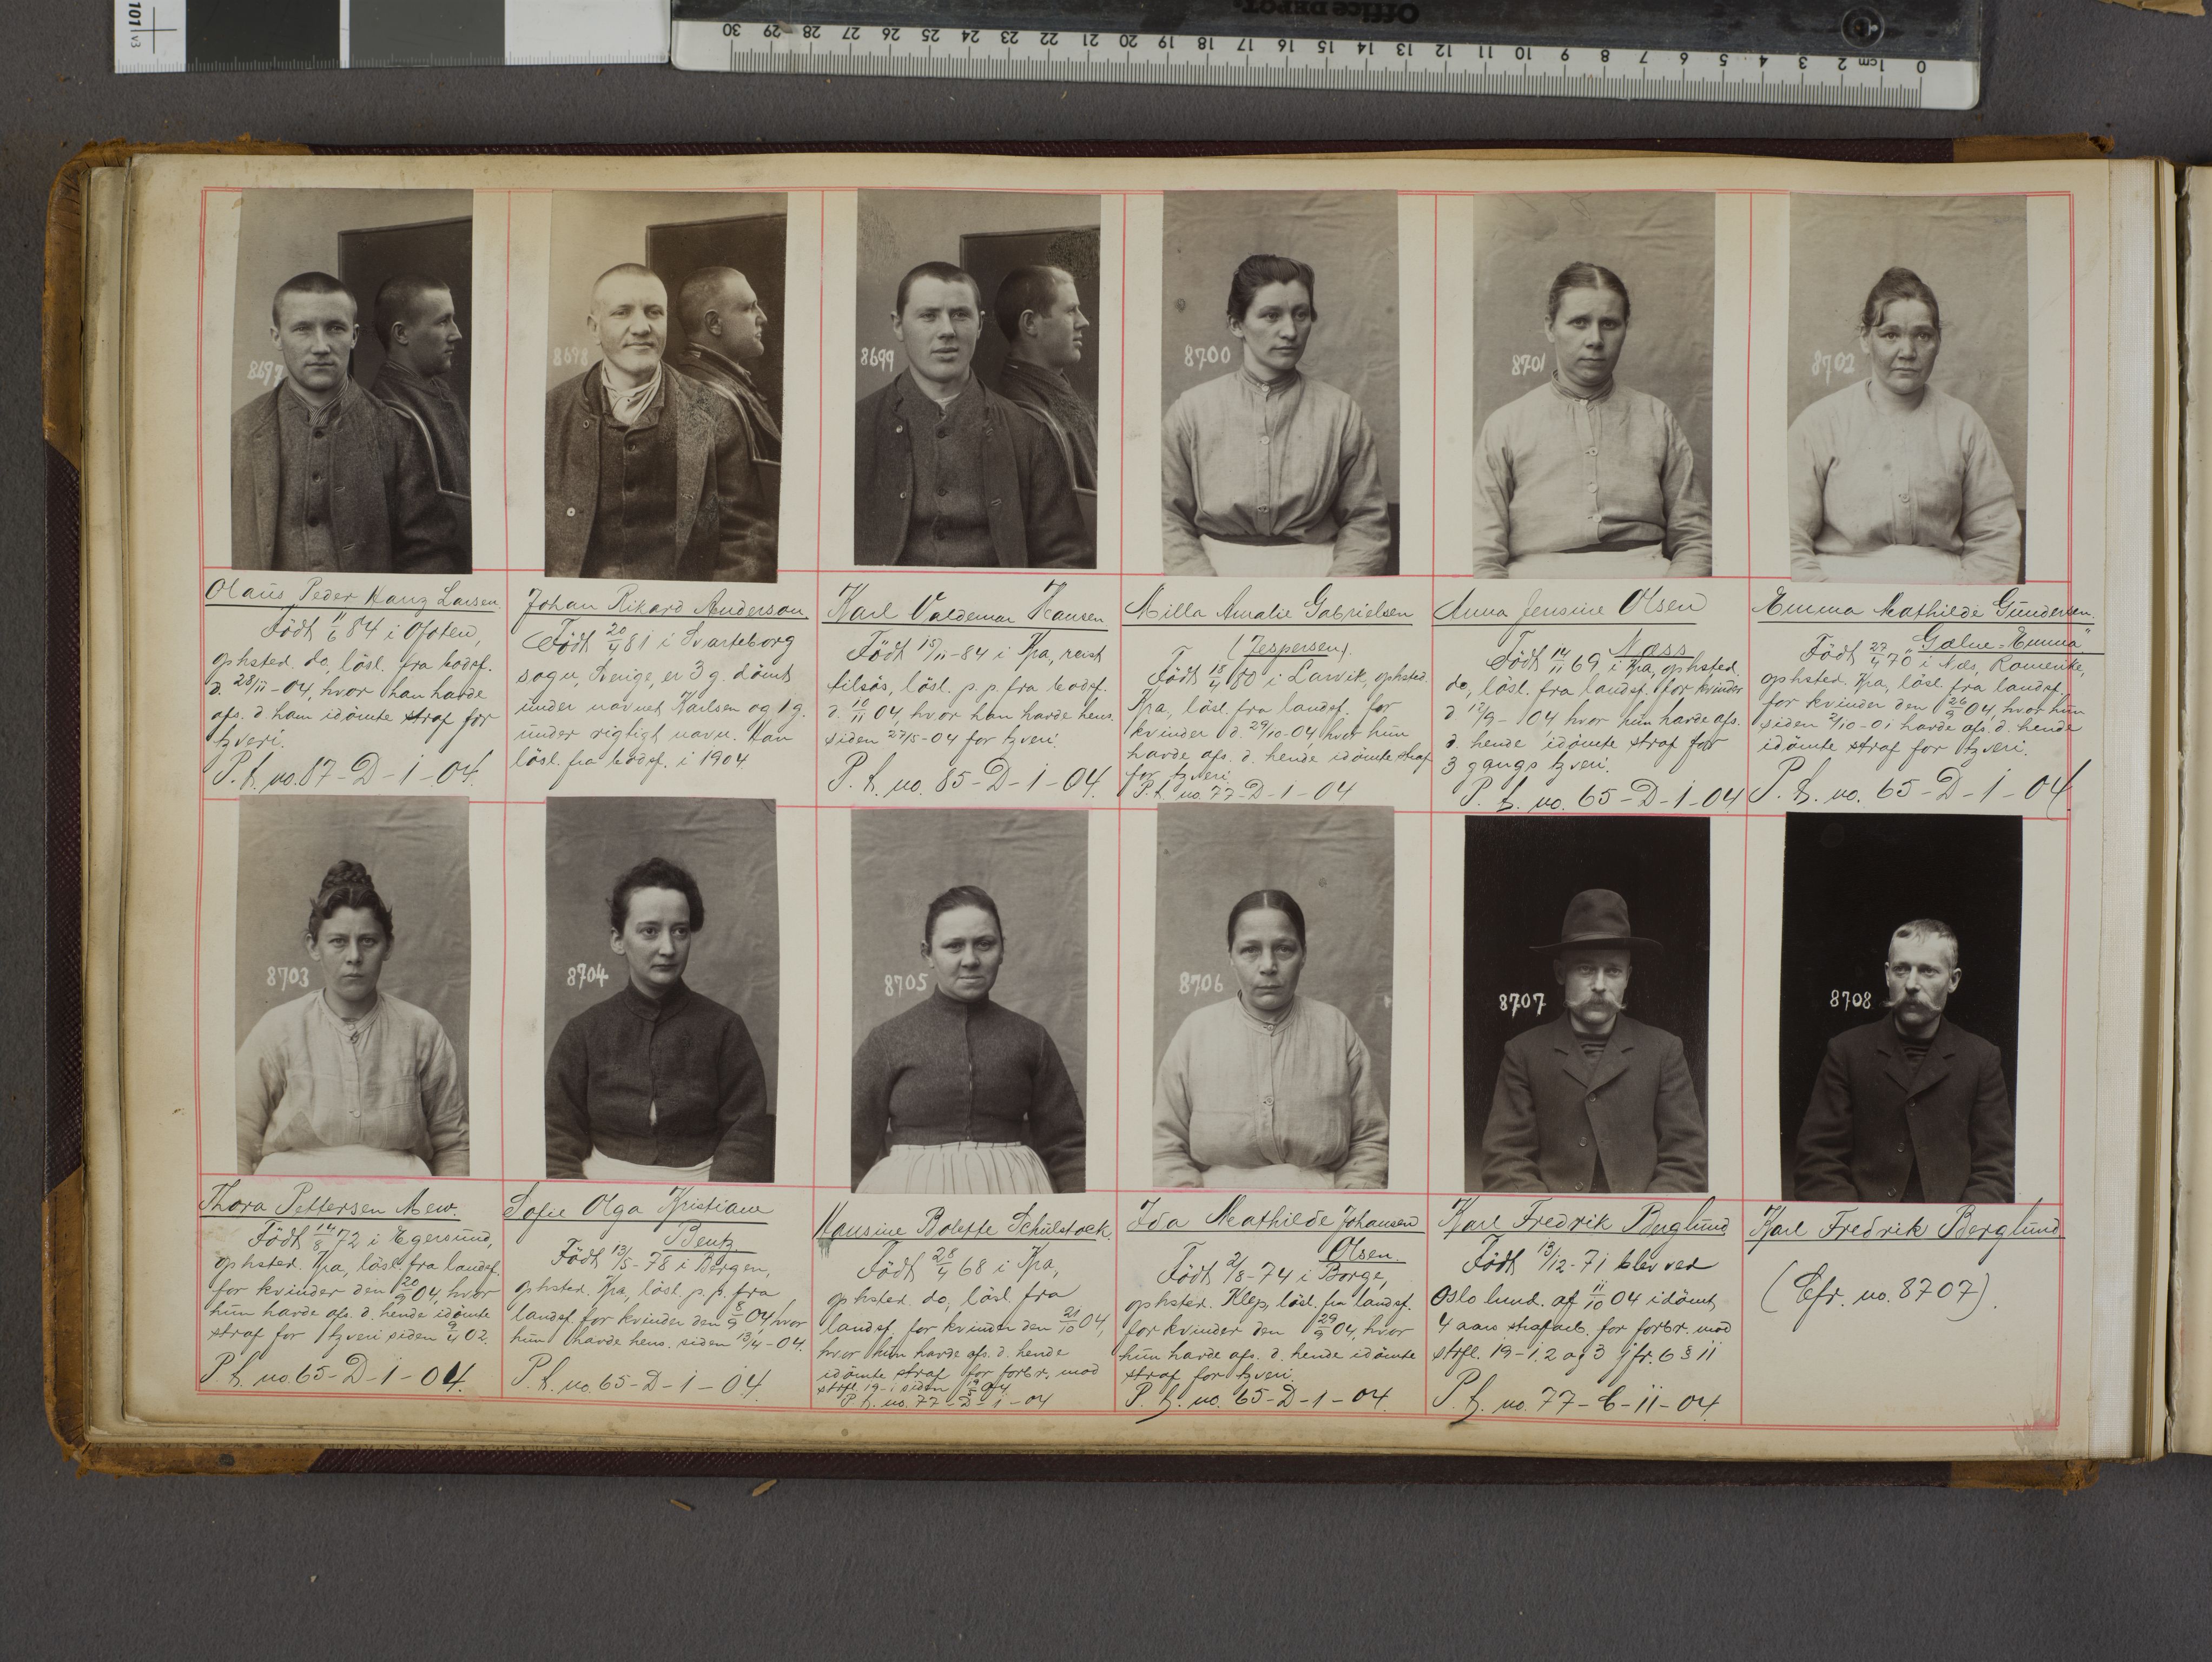 101 v3
Office DEPOT.
0 1cm 2 3 4 5 6 7 8 9 10 11 12 13 14 15 16 17 18 19 20 21 22 23 24 25 26 27 28 29 30
8697
8698
8699
8700
8701
8702
Olaus Peder Hanz Larsen.
Född 11/6 84 i Ofoten,
ophsted. do, lösl. fra bodsf.
d. 28/11-04, hvor han havde
afs. d ham idömte straf for
tyveri.
P. k. no. 87-D-1-04.
Johan Rikard Anderson
Född 20/4 81 i Svarteborg
sogn, Sverige, er 3 g. dömt
under navnet Karlsen og 1 g.
under rigtigt navn. Han
lösl. fra bodsf. i 1904
Karl Valdemar Hansen
Född 15/11-84 i Kra, reist
tilsös, lösl. p. p. fra bodsf.
d. 10/11 04, hvor han havde hens.
siden 27/5-04 for tyveri.
P. k. no. 85-D-1-04.
Milla Amalie Gabrielsen
(Jespersen).
Född 15/4 80 i Larvik, ophsted.
Kra, lösl. fra landsf. for
kvinder d. 29/10-04, hvor hun
havde afs. d. hende idömte straf
for tyveri.
P. k. no. 77-D-1-04
Anna Jensine Olsen
Næss
Född 14/11 69 i Kra, ophsted.
do, lösl. fra landsf. for kvinder
d 12/9-04 hvor hun havde afs.
d. hende idömte straf for
3 gangs tyveri.
P. k. no. 65-D-1-04
Emma Mathilde Gundersen.
"Galne-Emma"
Född 27/4 70 i Næs, Romerike,
ophsted. Kra, lösl. fra landsf.
for kvinder den 26/9 04, hvor hun
siden 2/10-01 havde afs. d. hende
idömte straf for tyveri.
P. k. no. 65-D-1-04
8703
8704
8705
8706
8707
8708
Thora Pettersen Mew.
Född 14/8 72 i Egersund,
ophsted. Kra, lösl. fra landsf.
for kvinder den 20/9 04, hvor
hun havde afs. d. hende idömte
straf for tyveri siden 9/4 02.
P. k. no. 65-D-1-04.
Sofie Olga Kristiane
Bentz.
Född 13/5-78 i Bergen,
ophsted. Kra, lösl. p. p. fra
landsf. for kvinder den 8/9 04, hvor
hun havde hens. siden 13/4-04.
P. k. no. 65-D-1-04.
Hansine Bolette Schulstock.
Född 28/4 68 i Kra,
ophsted. do, lösl. fra
landsf. for kvinder den 21/10 04,
hvor hun havde afs. d. hende
idömte straf for forbr. mod
strfl. 19-1 siden 04.
P. k. no. 77-D-1-04
Ida Mathilde Johansen
Olsen.
Född 2/8-74 i Borge,
ophsted. Klep, lösl. fra landsf.
for kvinder den 29/9 04, hvor
hun havde afs. d. hende idömte
straf for tyveri.
P. k. no. 65-D-1-04.
Karl Fredrik Berglund
Född 13/12-71 blev ved
Oslo lund. af 11/10 04 idömt
4 aars strafarb. for forbr. mod
strfl. 19-1, 2 og 3 jfr. 6 § 11
P. k. no. 77-C-11-04.
Karl Fredrik Berglund
(Cfr. no. 8707).